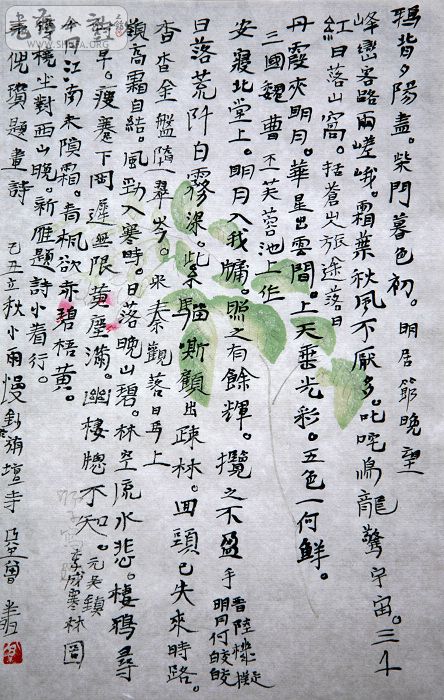 鸦背夕阳盡。柴門暮色初。明居節晚望
峰巒客路兩嵯峨。霜葉秋風不厭多。叱咤鳴龍驚宇宙。三千
紅日落山窩。括蒼山旅途落日
丹霞夾明月。華星出雲間。上天垂光彩。五色一何鮮。
三國魏曹丕芙蓉池上作
安寢北堂上。明月入我牖。照之有餘輝。攬之不盈手 晉陸機擬
明月何皎皎
日落荒阡白霧深。紫騮嘶顧出疎林。回頭已失來時路。
杳杳金盤墮翠岑。宋秦觀落日馬上
嶺高霜自結。風勁入寒時。日落晚山碧。林空流水悲。棲鴉尋
樹早。瘦蹇下岡遲。無限黄塵滿。幽棲總不知。元吳鎮
李成寒林圖
今日江南未隕霜。青楓欲赤碧梧黄。
停橈坐對西山晚。新雁題詩小著行。
元倪瓚題畫詩 己丑立秋小雨